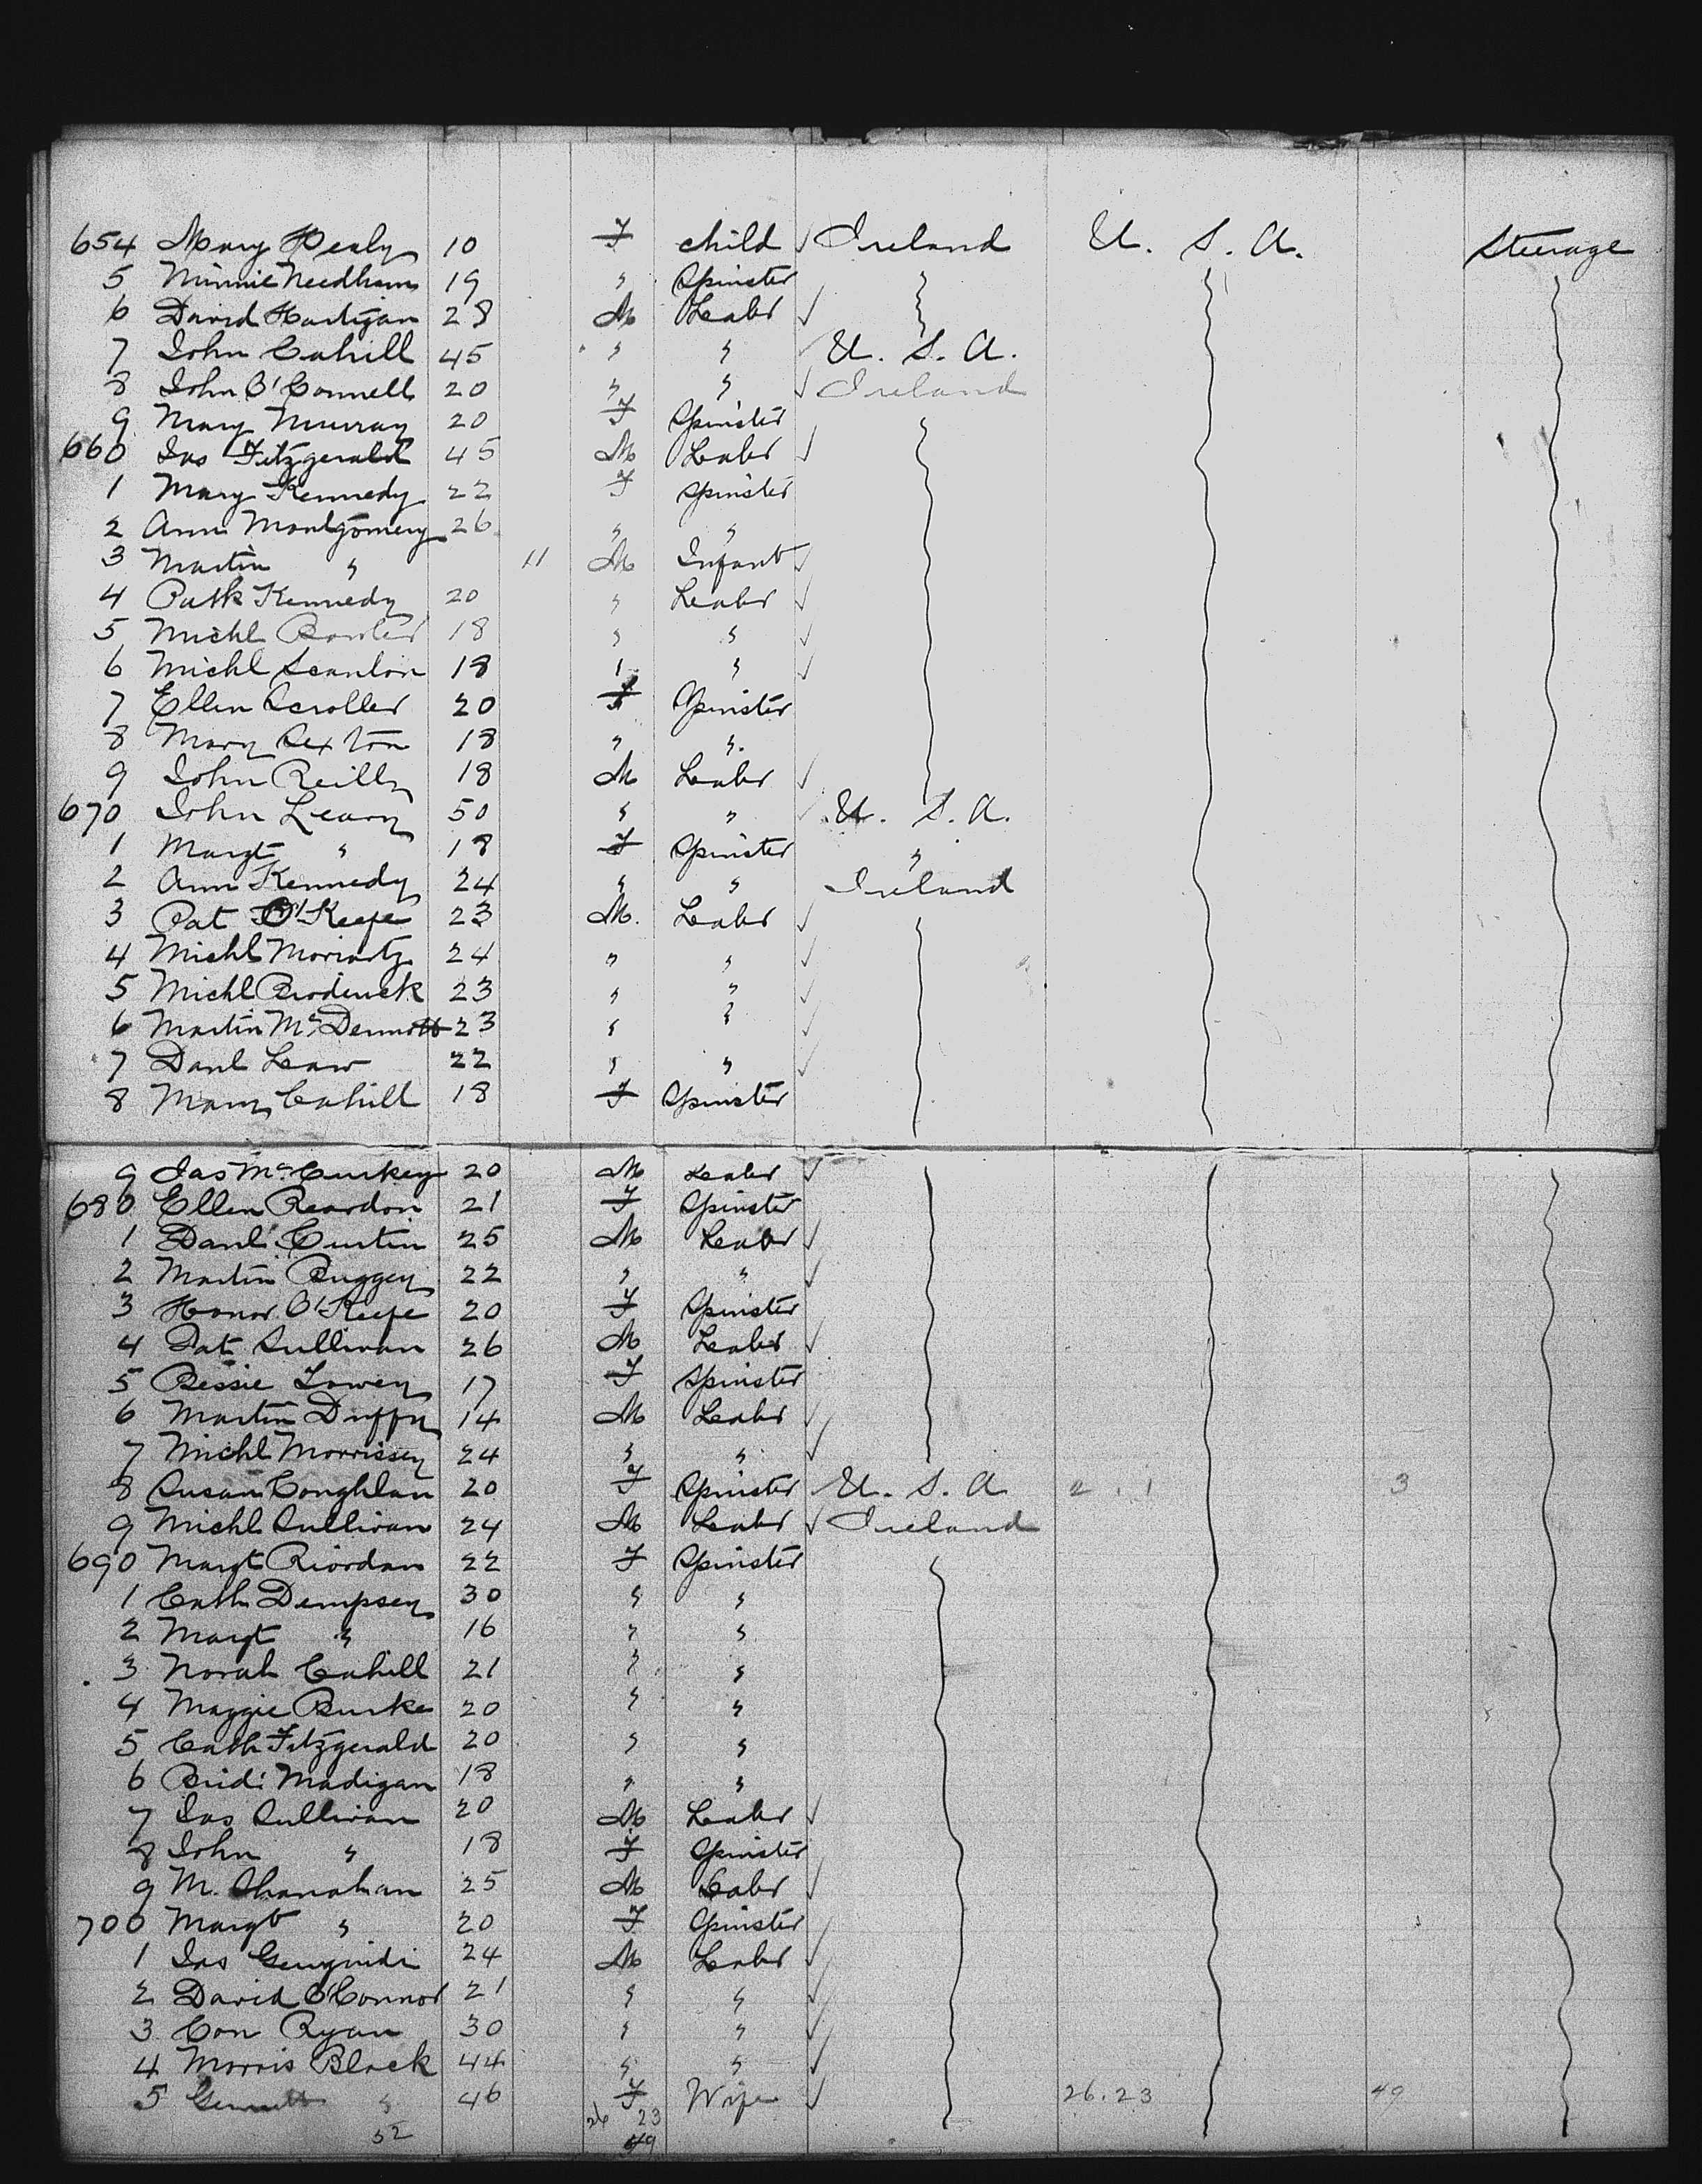 654 Mary Healy 10 F child ✓ Ireland U. S. A. Steerage
5 Minnie Needham 19 " Spinster "
6 David Hartigan 28 M Labr ✓ "
7 John Cahill 45 " " ✓ U. S. A.
8 John O'Connell 20 " " ✓ Ireland
9 Mary Murray 20 F Spinster
660 Jas Fitzgerald 45 M Labr ✓
1 Mary Kennedy 22 F Spinster
2 Ann Montgomery 26 " "
3 Martin " 11 M Infant ✓
4 Patk Kennedy 20 " Labr ✓
5 Michl 18 " " ✓
6 Michl Scanlon 18 " " ✓
7 Ellen Scroller 20 F Spinster
8 Mary Sexton 18 " "
9 John Reilly 18 M Labr ✓
670 John Leary 50 " " ✓ U. S. A.
1 Margt " 18 F Spinster "
2 Ann Kennedy 24 " " Ireland
3 Pat O'Keefe 23 M. Labr ✓
4 Michl Moriarty 24 " " ✓
5 Michl Broderick 23 " " ✓
6 Martin McDermott 23 " " ✓
7 Danl 22 " " ✓
8 Mary Cahill 18 F Spinster
9 Jas McCurkey 20 M Labr ✓
680 Ellen Reardon 21 F Spinster
1 Danl Curtin 25 M Labr ✓
2 Martin Buggey 22 " " ✓
3 Honor O'Keefe 20 F Spinster
4 Pat Sullivan 26 M Labr ✓
5 Bessie 17 F Spinster
6 Martin Duffy 14 M Labr ✓
7 Michl Morrissey 24 " " ✓
8 Susan Coughlan 20 F Spinster U. S. A 2 . 1 3
9 Michl Sullivan 24 M Labr ✓ Ireland
690 Margt Riordan 22 F Spinster
1 Cath Dempsey 30 " "
2 Margt " 16 " "
3 Norah Cahill 21 " "
4 Maggie Burke 20 " "
5 Cath Fitzgerald 20 " "
6 Bridt Madigan 18 " "
7 Jas Sullivan 20 M Labr ✓
8 John " 18 F Spinster
9 M. Shanahan 25 M Labr ✓
700 Margt " 20 F Spinster
1 Jas 24 M Labr ✓
2 David O'Connor 21 " " ✓
3 Con Ryan 30 " " ✓
4 Morris Black 44 " " ✓
5 " 46 F Wife ✓ 26.23 49
52 26 23
49